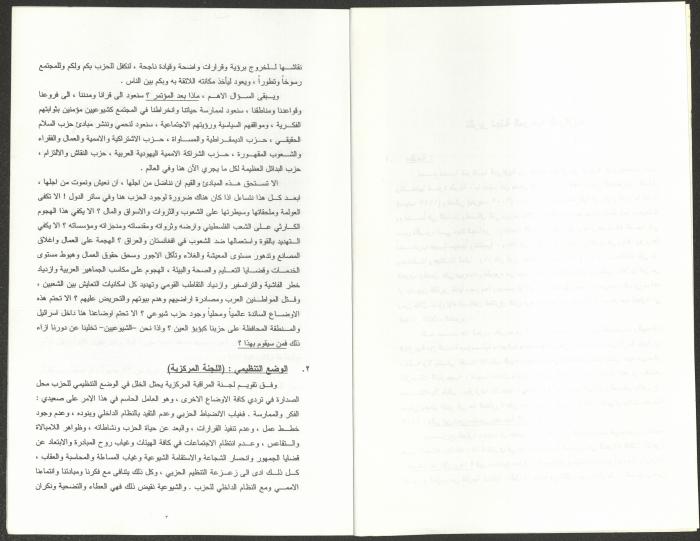 نقاشـــها للـــخروج برؤية وقرارات واضحة وقيادة ناجحة ، لتكفل للحزب بكم ولكم وللمجتمع
رسوخاً وتطوراً ، ويعود ليأخذ مكانته اللائقة به وبكم بين الناس .
ويـــبقى الســـؤال الاهـــم ، ماذا بعد المؤتمر ؟ سنعود الى قرانا ومدننا ، الى فروعنا
وقواعدنا ومناطقنا ، سنعود لممارسة حياتنا وانخراطنا في المجتمع كشيوعيين مؤمنين بثوابتهم
الفكـــرية ، ومواقفهم السياسية ورؤيتهم الاجتماعية ، سنعود لنحمي وننشر مبادئ حزب السلام
الحقيقـــي ، حـــزب الديمقـــراطية والمســـاواة ، حـــزب الاشتراكية والاممية والعمال والفقراء
والشـــعوب المقهـــورة ، حـــزب الشراكة الاممية اليهودية العربية ، حزب النقاش والالتزام ،
حزب البدائل العظيمة لكل ما يجري الآن هنا وفي العالم .
الا تســـتحق هـــذه المبادئ والقيم ان نناضل من اجلها ، ان نعيش ونموت من اجلها ،
ابعـــد كـــل هذا نتساءل اذا كان هناك ضرورة لوجود الحزب هنا وفي سائر الدول ! الا تكفي
العولمة وملحقاتها وسيطرتها على الشعوب والثروات والاسواق والمال ؟ الا يكفي هذا الهجوم
الكـــارثي علـــى الشعب الفلسطيني وارضه وثرواته ومقدساته ومنجزاته ومؤسساته ؟ الا يكفي
التـــهديد بالقوة واستعمالها ضد الشعوب في افغانستان والعراق ؟ الهجمة على العمال واغلاق
المصانع وتدهور مستوى المعيشة والغلاء وتآكل الاجور وسحق حقوق العمال وهبوط مستوى
الخدمـــات وقضـــايا التعـــليم والصحة والبيئة ، الهجوم على مكاسب الجماهير العربية وازدياد
خطر الفاشية والترانسفير وازدياد التقاطب القومي وتهديد كل امكانيات التعايش بين الشعبين ،
وقـــتل المواطـــنين العرب ومصادرة اراضيهم وهدم بيوتهم والتحريض عليهم ؟ الا تحتم هذه
الاوضـــاع السائدة عالمياً ومحلياً وجود حزب شيوعي ؟ الا تحتم اوضاعنا هنا داخل اسرائيل
والمـــنطقة المحافظة على حزبنا كبؤبؤ العين ؟ واذا نحن –الشيوعيين– تخلينا عن دورنا ازاء
ذلك فمن سيقوم بهذا ؟
٢. الوضع التنظيمي : (اللجنة المركزية)
وفـــق تقويـــم لجـــنة المراقبة المركزية يحتل الخلل في الوضع التنظيمي للحزب محل
الصدارة في تردي كافة الاوضاع الاخرى ، وهو العامل الحاسم في هذا الامر على صعيدي :
الفكر والممارسة . فغياب الانضباط الحزبي وعدم التقيد بالنظام الداخلي وبنوده ، وعدم وجود
خطـــط عمل ، وعدم تنفيذ القرارات ، والبعد عن حياة الحزب ونشاطاته ، وظواهر اللامبالاة
والـــتقاعس ، وعـــدم انتظام الاجتماعات في كافة الهيئات وغياب روح المبادرة والابتعاد عن
قضايا الجمهور وانحسار الشجاعة والاستقامة الشيوعية وغياب المساءلة والمحاسبة والعقاب ،
كـــل ذلـــك ادى الى زعـــزعة التنظيم الحزبي ، وكل ذلك يتنافى مع فكرنا ومبادئنا وانتمائنا
الاممـــي ومع النظام الداخلي للحزب . والشيوعية نقيض ذلك فهي العطاء والتضحية ونكران
٢